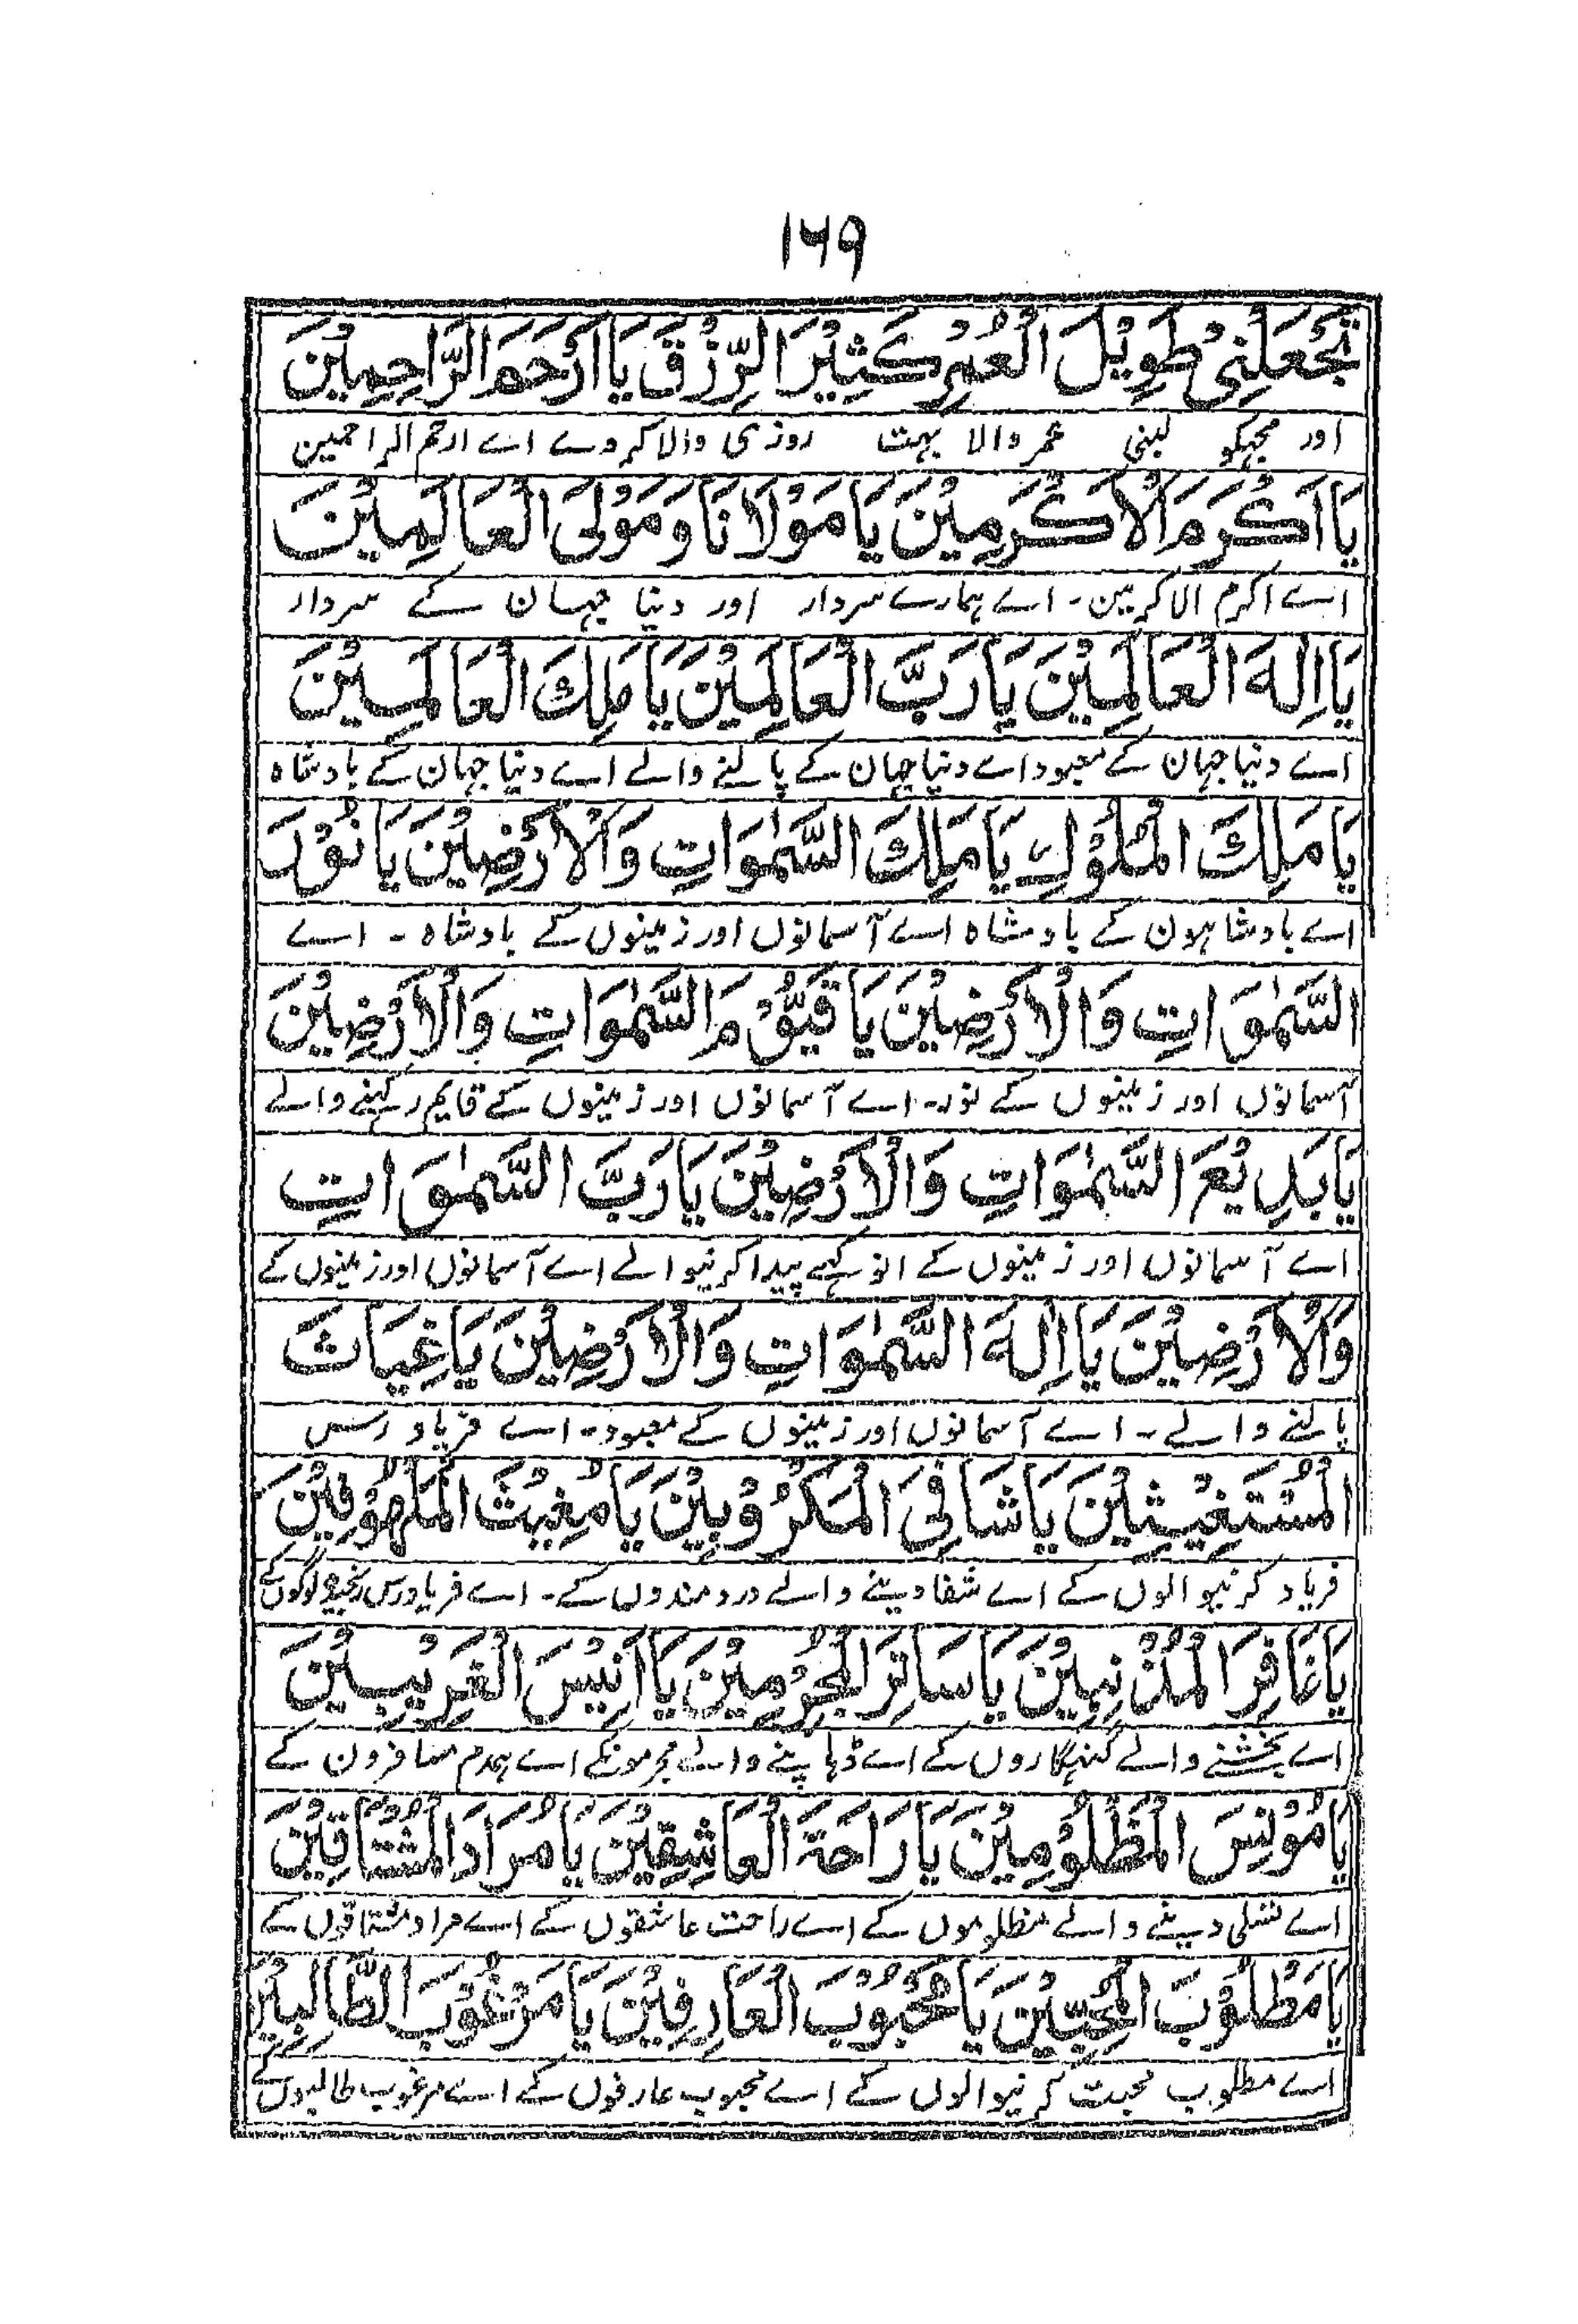 ۱۶۹
تَجْعَلَنِيْ طَوِيْلَ الْعُمُرِ كَثِيْرَ الرِّزْقِ يَا اَرْحَمَ الرَّاحِمِيْنَ
اور مجہکو لمبی عمر والا بہت روزی والا کر دے اے ارحم الراحمین
يَا اَكْرَمَ الْاَكْرَمِيْنَ يَا مَوْلَانَا وَمَوْلَى الْعَالَمِيْنَ
اے اکرم الاکرمین۔ اے ہمارے سردار اور دنیا جہان کے سردار
يَا اِلٰهَ الْعَالَمِيْنَ يَا رَبَّ الْعَالَمِيْنَ يَا مَلِكَ الْعَالَمِيْنَ
اے دنیا جہان کے معبود اے دنیا جہان کے پالنے والے اے دنیا جہان کے بادشاہ
يَا مَلِكَ الْمُلُوْكِ يَا مَلِكَ السَّمٰوَاتِ وَالْاَرَضِيْنَ يَا نُوْرَ
اے بادشاہون کے بادشاہ اے آسمانوں اور زمینوں کے بادشاہ ۔ اے
السَّمٰوَاتِ وَالْاَرَضِيْنَ يَا قَيُّوْمَ السَّمٰوَاتِ وَالْاَرَضِيْنَ
آسمانوں اور زمینوں کے نور۔ اے آسمانوں اور زمینوں کے قایم رکہنے والے
يَا بَدِيْعَ السَّمٰوَاتِ وَالْاَرَضِيْنَ يَا رَبَّ السَّمٰوَاتِ
اے آسمانوں اور زمینوں کے انوکہے پیدا کرنیوالے اے آسمانوں اور زمینوں کے
وَالْاَرَضِيْنَ يَا اِلٰهَ السَّمٰوَاتِ وَالْاَرَضِيْنَ يَا غِيَاثَ
پالنے والے۔ اے آسمانوں اور زمینوں کے معبود۔ اے فریاد رس
الْمُسْتَغِيْثِيْنَ يَا شَافِيَ الْمَكْرُوْبِيْنَ يَا مُغِيْثَ الْمَلْهُوْفِيْنَ
فریاد کرنیوالوں کے اے شفا دینے والے درد مندوں کے۔ اے فریادرس رنجیدہ لوگوں کے
يَا غَافِرَ الْمُذْنِبِيْنَ يَا سَاتِرَ الْمُجْرِمِيْنَ يَا اَنِيْسَ الْغَرِيْبِيْنَ
اے بخشنے والے گنہگاروں کے اے ڈہاپنے والے مجرمونکے اے ہمدم مسافرون کے
يَا مُوْنِسَ الْمَظْلُوْمِيْنَ يَا رَاحَةَ الْعَاشِقِيْنَ يَا مُرَادَ الْمُشْتَاقِيْنَ
اے تسلی دینے والے مظلوموں کے اے راحت عاشقوں کے اے مراد مشتاقوں کے
يَا مَطْلُوْبَ الْمُحِبِّيْنَ يَا مَحْبُوْبَ الْعَارِفِيْنَ يَا مَرْغُوْبَ الطَّالِبِيْنَ
اے مطلوب محبت کرنیوالوں کے اے محبوب عارفوں کے اے مرغوب طالبوں کے